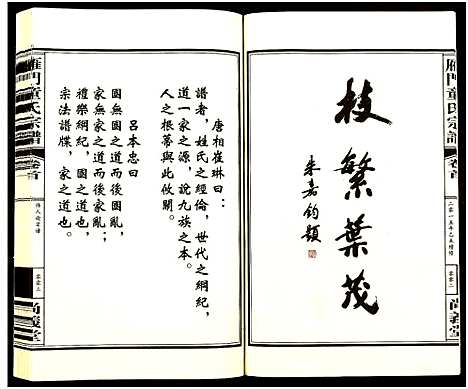 雁門童氏宗譜
卷首
二零一五年乙未續修
零零二
尚義堂
枝繁葉茂
朱嘉鈞題
唐柏崔琳曰：
譜者，姓氏之經倫，世代之綱紀，
道一家之源，說九族之本。
人之根蒂與此攸關。
呂本忠曰
國無國之道而後國亂；
家無家之道而後家亂；
禮樂綱紀，國之道也。
宗法譜牒，家之道也。
雁門童氏宗譜
卷首
零零三
尚義堂